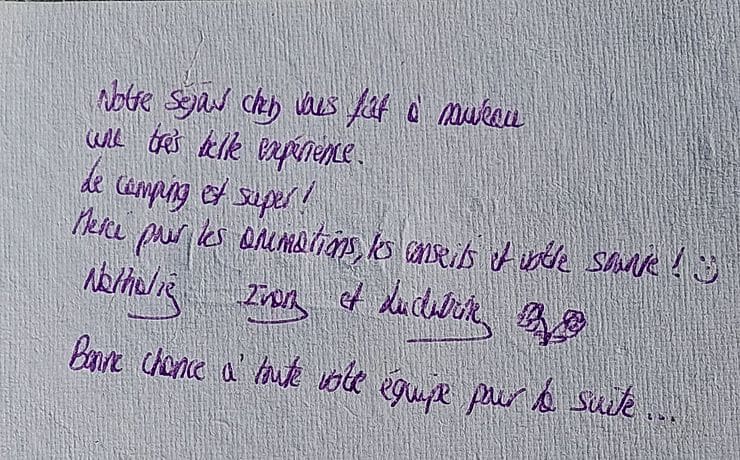 Notre séjour chez vous fût à nouveau
une très belle expérience.
Le camping est super!
Merci pour les animations, les conseils et votre sourire! :)
Nathalie et
Bonne chance à toute votre équipe pour la suite...